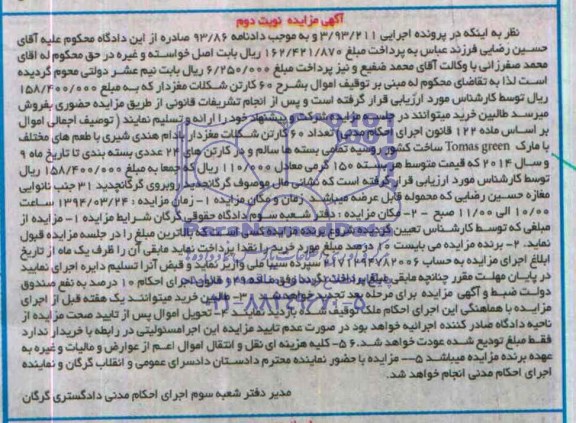 آگهی مزایده نوبت دوم
نظر به اینکه در پرونده اجرایی ۳/۹۳/۲۱۱ و به موجب دادنامه ۹۳/۸۶ صادره از این دادگاه محکوم علیه آقای
حسین رضایی فرزند عباس به پرداخت مبلغ ۱۶۲/۴۲۱/۸۷۰ ریال بابت اصل خواسته و غیره در حق محکوم له اقای
محمد صفرزائی با وکالت آقای محمد ضفیع و نیز پرداخت مبلغ ۶/۲۵۰/۰۰۰ ریال بابت نیم عشر دولتی محوم گردیده
است لذا به تقاضای محکوم له مبنی بر توقیف اموال بشرح ۶۰ کارتن شکلات مغزدار که به مبلغ ۱۵۸/۴۰۰/۰۰۰
ریال توسط کارشناس مورد ارزیابی قرار گرفته است و پس از انجام تشریفات قانونی از طریق مزایده حضوری بفروش
میرسد طالبین خرید میتوانند در جلسه مزایده شرکت و پیشنهاد خود را ارائه و تسلیم نمایند ( توصیف اجمالی اموال
بر اساس ماده ۱۲۲ قانون اجرای احکام مدنی) تعداد ۶۰ کارتن شکلات مغزدار بادام هندی شیری با طعم های مختلف
با مارک Tomas green ساخت کشور روسیه تمامی بسته ها سالم و در کارتن های ۲۴ عددی بسته بندی تا تاریخ ماه ۹
و سال ۲۰۱۴ که قیمت متوسط هر بسته ۱۵۰ گرمی معادل ۱۱۰/۰۰۰ ریال که جمعا به مبلغ ۱۵۸/۴۰۰/۰۰۰ ریال
توسط کارشناس مورد ارزیابی قرار گرفته است که نشانی مال موصوف گرگانجدید روبروی گرگانجدید ۳۱ جنب نانوایی
مغازه حسین رضایی که محموله قابل عرضه میباشد زمان و مکان مزایده ۱- زمان مزایده : ۱۳۹۴/۰۳/۲۴ ساعت
۱۰/۰۰ الی ۱۱/۰۰ صبح -۲- مکان مزایده : دفتر شعبه سوم دادگاه حقوقی گرگان شرایط مزایده ۱- مزایده از
مبلغی که توسط کارشناس تعیین گردیده شروع برنده مزایده کسی است که بالاترین مبلغ را در جلسه مزایده قبول
نماید. ۲- برنده مزایده می بایست ۱۰ درصد مبلغ مورد خرید را نقدا پرداخت نماید مابقی آن را ظرف یک ماه از تاریخ
ابلاغ اجرای مزایده به حساب سپرده سیبا ملی واریز نماید و قبض آنرا تسلیم دایره اجرای نمایید
در پایان مهلت مقرر چنانچه مابقی مبلغ پرداخت نگردد وفق ماده ۱۲۹ و قانون اجرای احکام ۱۰ درصد به نفع صندوق
دولت ضبط و آگهی مزایده برای مرحله بعد تجدید خواهد شد ۳- طالبین خرید میتوانند یک هفته قبل از اجرای
مزایده با هماهنگی این اجرای احکام ملک توقیف شده بازدید نمایند ۴- تحویل اموال پس از تایید صحت مزایده از
ناحیه دادگاه صادر کننده اجرائیه خواهد بود در صورت عدم تایید مزایده این اجرا مسئولیتی در رابطه با خریدار ندارد
فقط مبلغ تودیع شده عودت خواهد شد.۶ ۵- کلیه هزینه ای نقل و انتقال اموال اعم از عوارض و مالیات و غیره به
عهده برنده مزایده میباشد ۵-- مزایده با حضور نماینده محترم دادستان دادسرای عمومی و انقلاب گرگان و نماینده
اجرای احکام مدنی انجام خواهد شد.
مدیر دفتر شعبه سوم اجرای احکام مدنی دادگستری گرگان